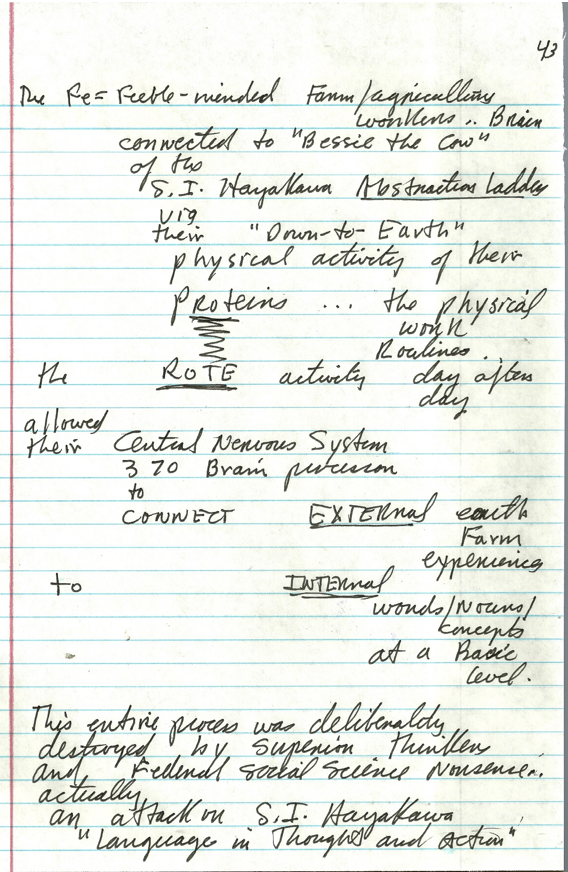 43
The Fe = Feeble-minded Farm/agriculture
workers .. Brain
connected to "Bessie the Cow"
of the
S.I. Hayakawa Abstraction Ladder
via
their "Down-to-Earth"
physical activity of their
PROteins ... the physical
work
Routines ..
the ROTE activity day after
day
allowed
their Central Nervous System
370 Brain processor
to
CONNECT EXTERNAl earth
Farm
experiences
to INTERNAl
words/Nouns/
concepts
at a Basic
level.
This entire process was deliberately
destroyed by Superior Thinkers
and Federal Social Science Nonsense..
actually
an attack on S.I. Hayakawa
"Language in Thought and Action"